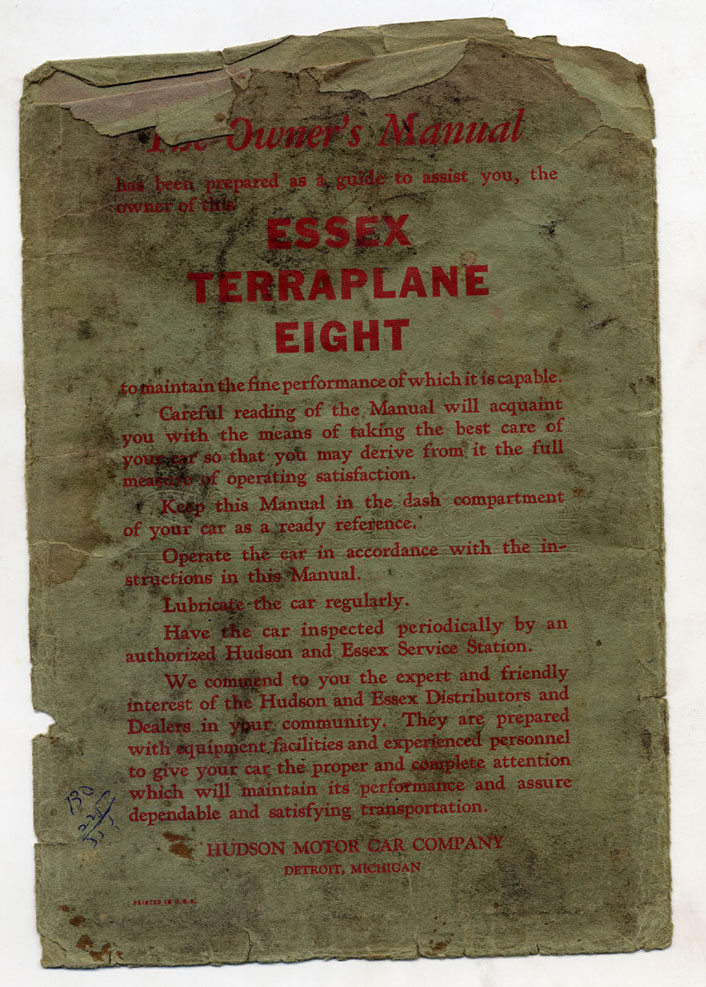 The Owner's Manual
has been prepared as a guide to assist you, the
owner of this
ESSEX
TERRAPLANE
EIGHT
to maintain the fine performance of which it is capable.
Careful reading of the Manual will acquaint
you with the means of taking the best care of
your car so that you may derive from it the full
measure of operating satisfaction.
Keep this Manual in the dash compartment
of your car as a ready reference.
Operate the car in accordance with the in-
structions in this Manual.
Lubricate the car regularly.
Have the car inspected periodically by an
authorized Hudson and Essex Service Station.
We commend to you the expert and friendly
interest of the Hudson and Essex Distributors and
Dealers in your community. They are prepared
with equipment, facilities and experienced personnel
to give your car the proper and complete attention
which will maintain its performance and assure
dependable and satisfying transportation.
130
HUDSON MOTOR CAR COMPANY
DETROIT, MICHIGAN
PRINTED IN U.S.A.